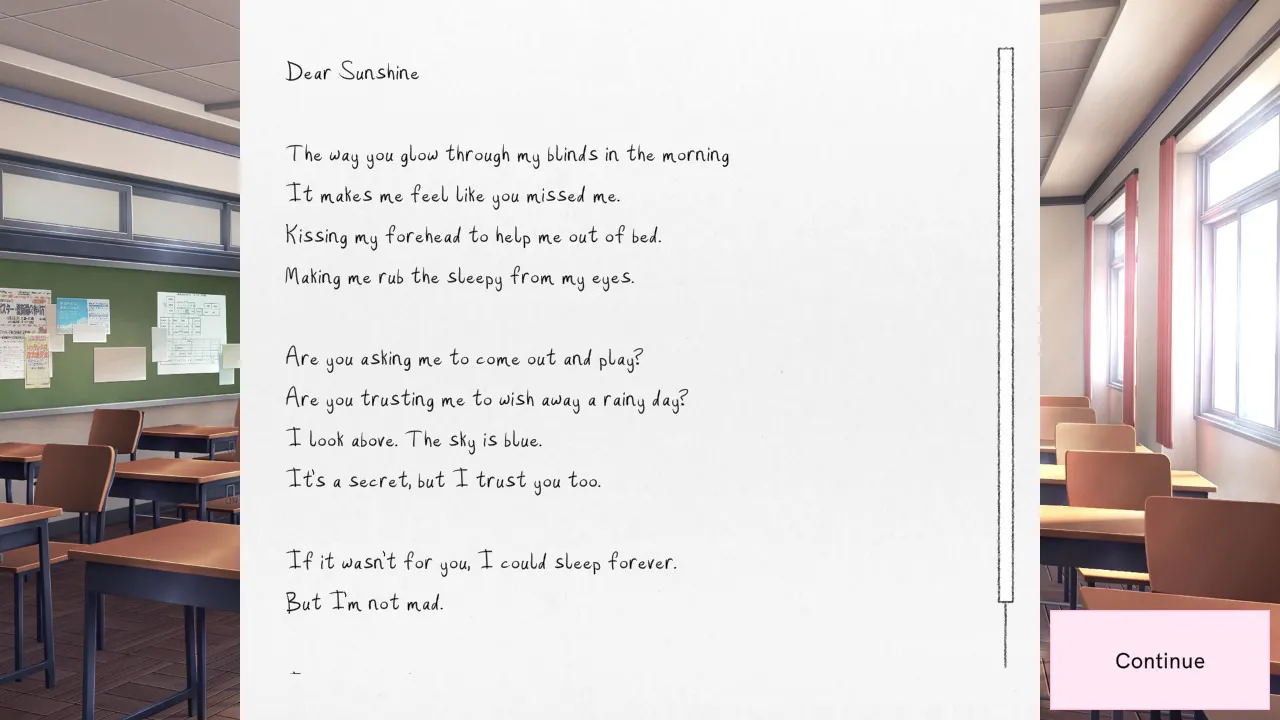 Dear Sunshine
The way you glow through my blinds in the morning
It makes me feel like you missed me.
Kissing my forehead to help me out of bed.
Making me rub the sleepy from my eyes.
Are you asking me to come out and play?
Are you trusting me to wish away a rainy day?
I look above. The sky is blue.
It's a secret, but I trust you too.
If it wasn't for you, I could sleep forever.
But I'm not mad.
Continue